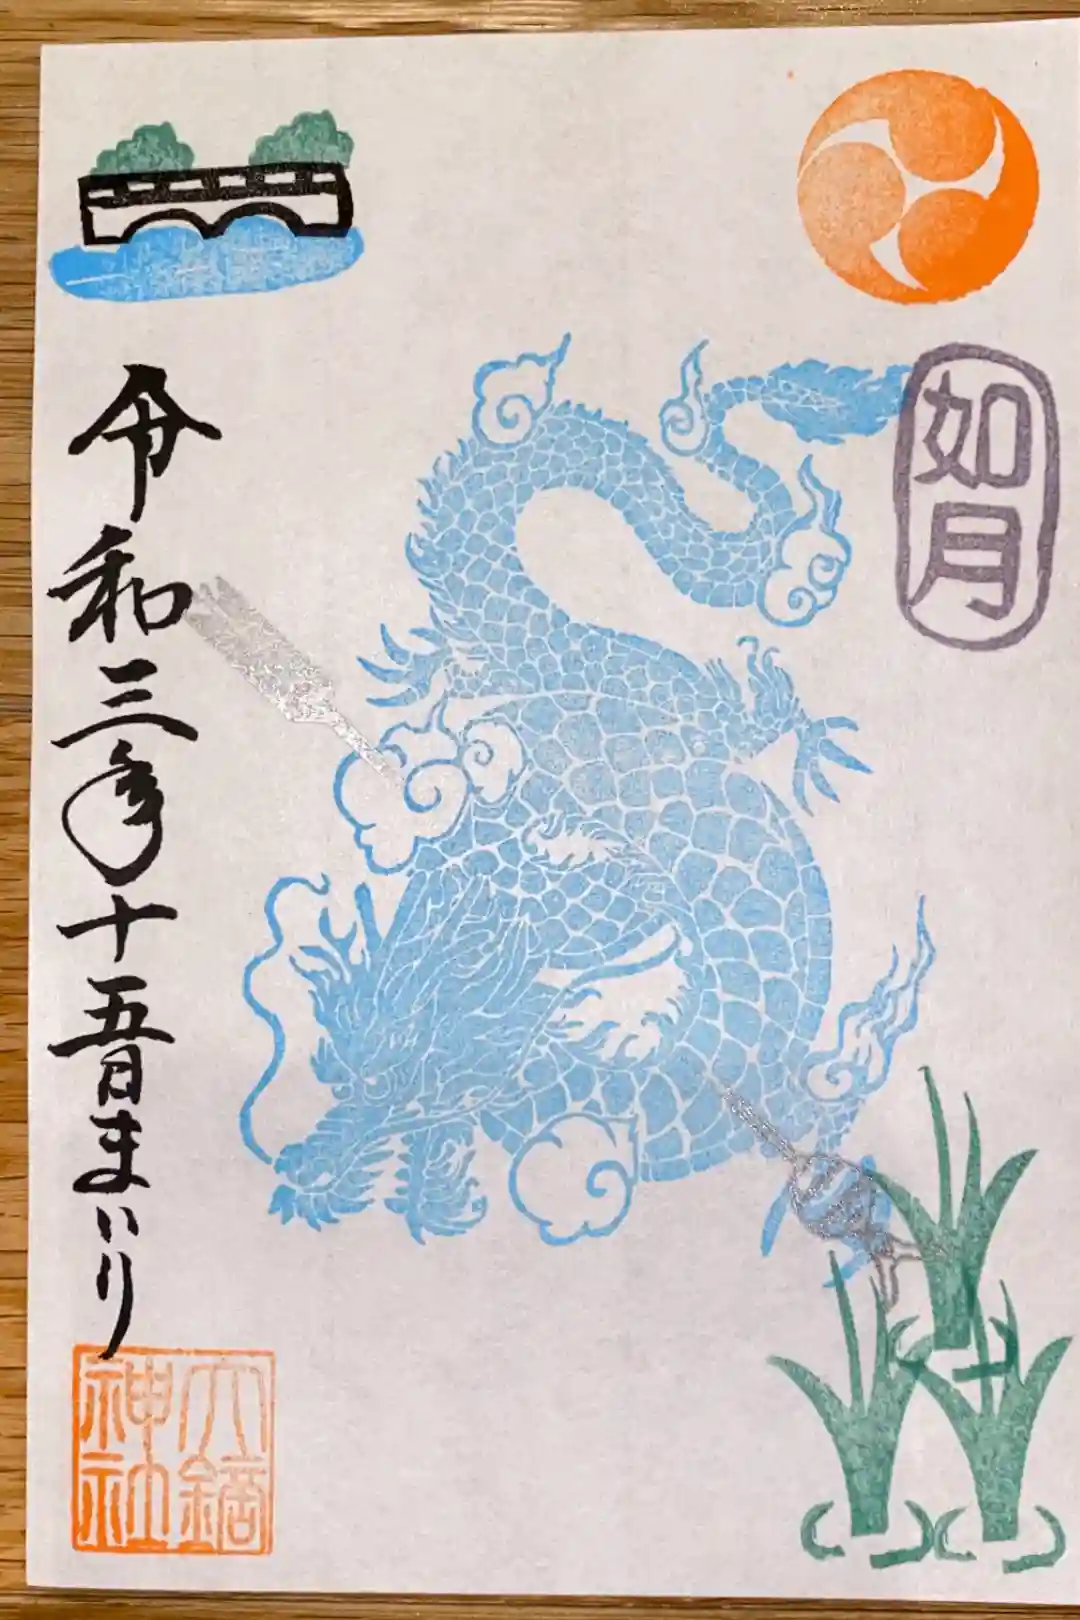 如月
令和三年十五日まいり
六鏑
神社